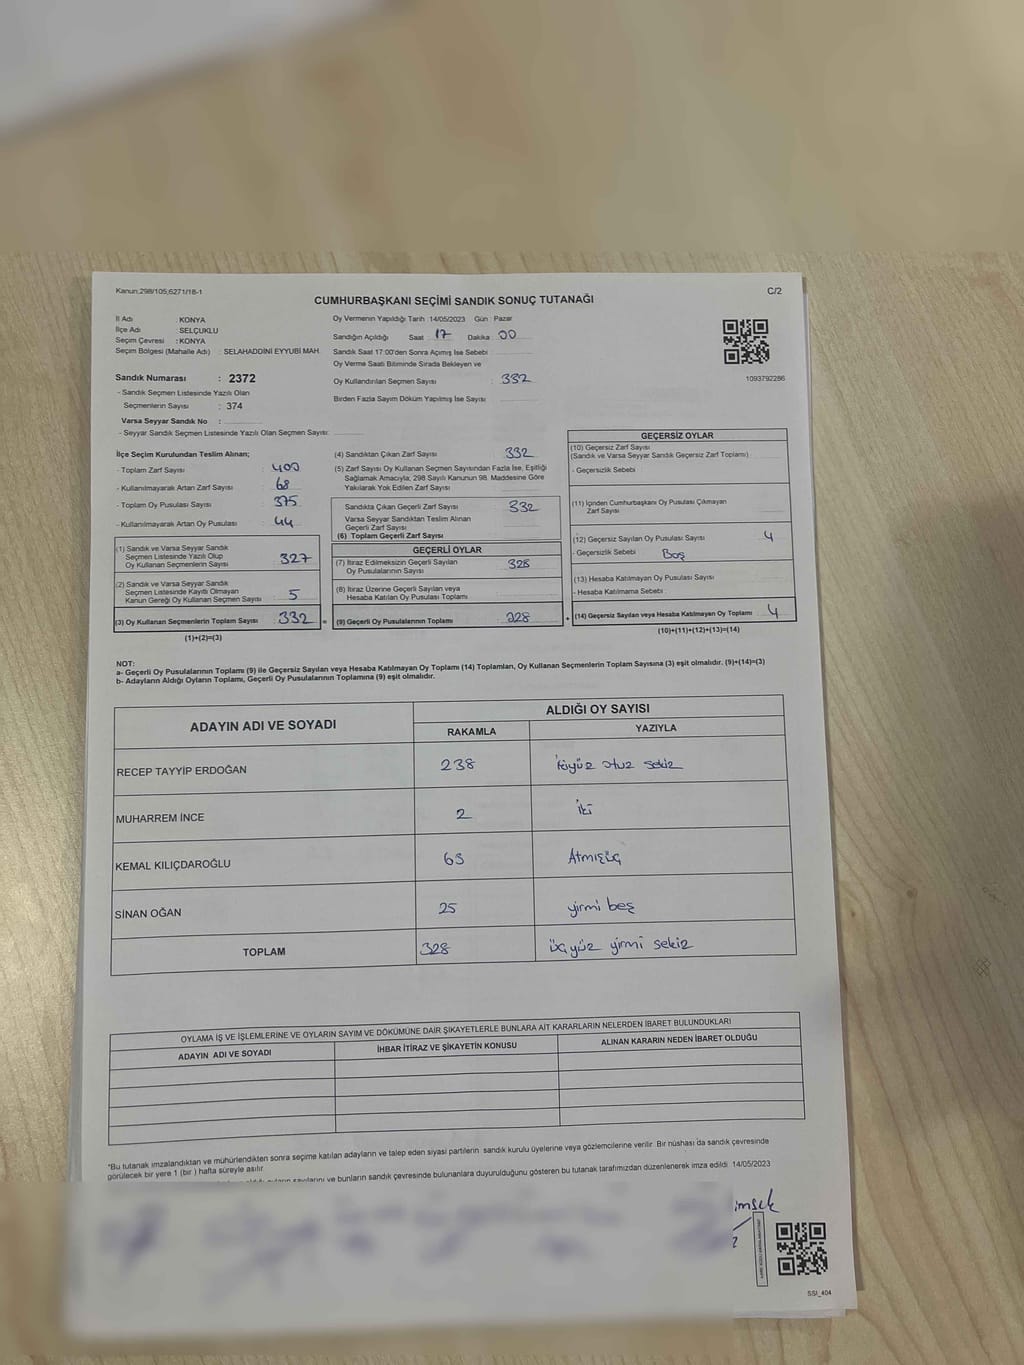 Kanun:298/105;6271/18-1
C/2
CUMHURBAŞKANI SEÇİMİ SANDIK SONUÇ TUTANAĞI
İl Adı : KONYA
İlçe Adı : SELÇUKLU
Seçim Çevresi : KONYA
Seçim Bölgesi (Mahalle Adı) : SELAHADDİNİ EYYUBİ MAH.
Sandık Numarası : 2372
- Sandık Seçmen Listesinde Yazılı Olan
Seçmenlerin Sayısı : 374
Varsa Seyyar Sandık No :
- Seyyar Sandık Seçmen Listesinde Yazılı Olan Seçmen Sayısı:
Oy Vermenin Yapıldığı Tarih :14/05/2023 Gün : Pazar
Sandığın Açıldığı Saat 17 Dakika 00
Sandık Saat 17:00'den Sonra Açımış İse Sebebi
Oy Verme Saati Bitiminde Sırada Bekleyen ve
Oy Kullandırılan Seçmen Sayısı : 332
Birden Fazla Sayım Döküm Yapılmış İse Sayısı
1093792286
İlçe Seçim Kurulundan Teslim Alınan;
- Toplam Zarf Sayısı : 400
- Kullanılmayarak Artan Zarf Sayısı : 68
- Toplam Oy Pusulası Sayısı : 375
- Kullanılmayarak Artan Oy Pusulası : 44
(1) Sandık ve Varsa Seyyar Sandık
Seçmen Listesinde Yazılı Olup
Oy Kullanan Seçmenlerin Sayısı : 327
(2) Sandık ve Varsa Seyyar Sandık
Seçmen Listesinde Kayıtlı Olmayan
Kanun Gereği Oy Kullanan Seçmen Sayısı : 5
(3) Oy Kullanan Seçmenlerin Toplam Sayısı : 332 =
(1)+(2)=(3)
(4) Sandıktan Çıkan Zarf Sayısı : 332
(5) Zarf Sayısı Oy Kullanan Seçmen Sayısından Fazla İse, Eşitliği
Sağlamak Amacıyla; 298 Sayılı Kanunun 98. Maddesine Göre
Yakılarak Yok Edilen Zarf Sayısı
Sandıkta Çıkan Geçerli Zarf Sayısı : 332
Varsa Seyyar Sandıktan Teslim Alınan
Geçerli Zarf Sayısı
(6) Toplam Geçerli Zarf Sayısı
GEÇERLİ OYLAR
(7) İtiraz Edilmeksizin Geçerli Sayılan
Oy Pusulalarının Sayısı : 328
(8) İtiraz Üzerine Geçerli Sayılan veya
Hesaba Katılan Oy Pusulası Toplamı
(9) Geçerli Oy Pusulalarının Toplamı : 328 +
GEÇERSİZ OYLAR
(10) Geçersiz Zarf Sayısı
(Sandık ve Varsa Seyyar Sandık Geçersiz Zarf Toplamı)
- Geçersizlik Sebebi
(11) İçinden Cumhurbaşkanı Oy Pusulası Çıkmayan
Zarf Sayısı
(12) Geçersiz Sayılan Oy Pusulası Sayısı 4
- Geçersizlik Sebebi Boş
(13) Hesaba Katılmayan Oy Pusulası Sayısı
- Hesaba Katılmama Sebebi
(14) Geçersiz Sayılan veya Hesaba Katılmayan Oy Toplamı 4
(10)+(11)+(12)+(13)=(14)
NOT:
a- Geçerli Oy Pusulalarının Toplamı (9) ile Geçersiz Sayılan veya Hesaba Katılmayan Oy Toplamı (14) Toplamları, Oy Kullanan Seçmenlerin Toplam Sayısına (3) eşit olmalıdır. (9)+(14)=(3)
b- Adayların Aldığı Oyların Toplamı, Geçerli Oy Pusulalarının Toplamına (9) eşit olmalıdır.
ADAYIN ADI VE SOYADI
ALDIĞI OY SAYISI
RAKAMLA YAZIYLA
RECEP TAYYİP ERDOĞAN 238 ikiyüz otuz sekiz
MUHARREM İNCE 2 iki
KEMAL KILIÇDAROĞLU 63 Atmışüç
SİNAN OĞAN 25 yirmi beş
TOPLAM 328 üçyüz yirmi sekiz
OYLAMA İŞ VE İŞLEMLERİNE VE OYLARIN SAYIM VE DÖKÜMÜNE DAİR ŞİKAYETLERLE BUNLARA AİT KARARLARIN NELERDEN İBARET BULUNDUKLARI
ADAYIN ADI VE SOYADI İHBAR İTİRAZ VE ŞİKAYETİN KONUSU ALINAN KARARIN NEDEN İBARET OLDUĞU
*Bu tutanak imzalandıktan ve mühürlendikten sonra seçime katılan adayların ve talep eden siyasi partilerin sandık kurulu üyelerine veya gözlemcilerine verilir. Bir nüshası da sandık çevresinde
görülecek bir yere 1 (bir ) hafta süreyle asılır.
sayılarını ve bunların sandık çevresinde bulunanlara duyurulduğunu gösteren bu tutanak tarafımızdan düzenlenerek imza edildi. 14/05/2023
imsek
SSI_404